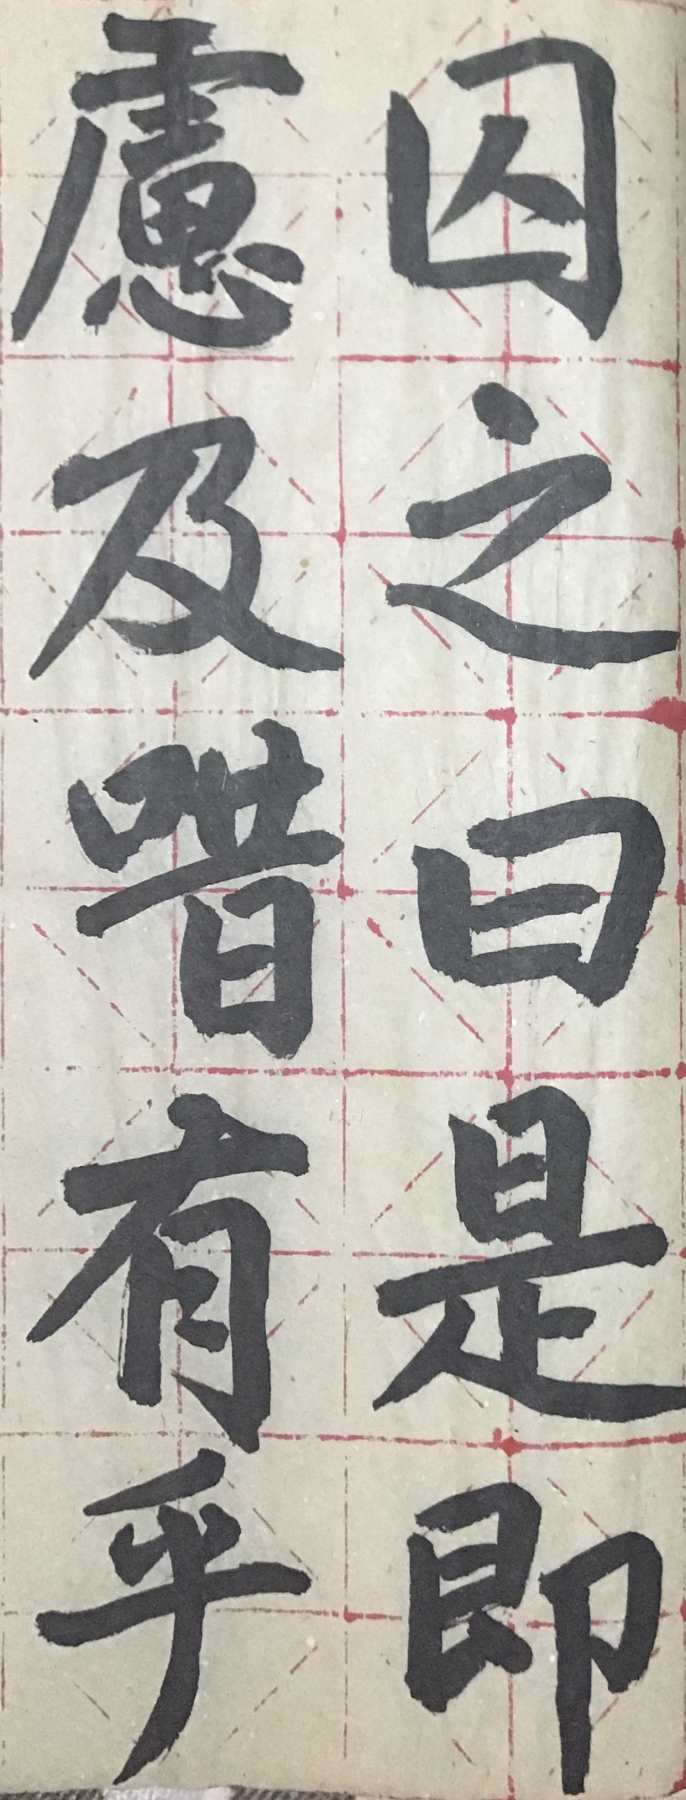 囚之曰是即
慮及唶有乎